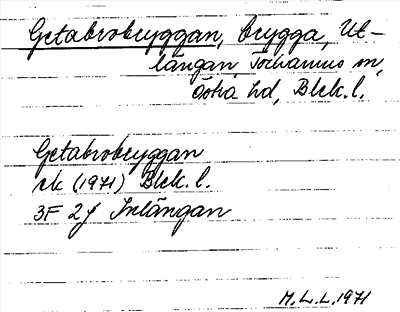 Getabrobryggan, brygga, Ut-
längan, Torhamns sn,
Östra hd, Blek. l.
Getabrobryggan
ek (1971) Blek. l.
3F 2j Inlängan
M. L. L. 1971